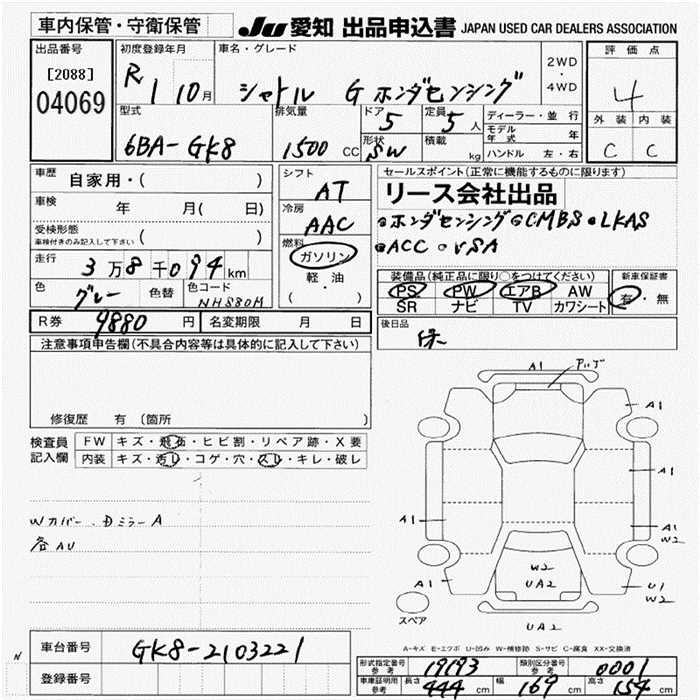 車内保管・守衛保管 JU 愛知 出品申込書 JAPAN USED CAR DEALERS ASSOCIATION
出品番号
[2088]
04069
初度登録年月
R 1 10月
車名・グレード
シャトル G ホンダセンシング
2WD
・
4WD
評価点
4
型式
6BA-GK8
排気量
1500 CC
ドア 5
形状 SW
定員 5 人
積載 kg
ディーラー・並行
モデル年式 年
ハンドル 左・右
外装 内装
C C
車歴 自家用・( )
車検 年 月( 日)
受検形態
車検付きのみ記入して下さい ( )
走行 3万8千094km
色 グレー 色替 色コード NH880M
シフト
AT
冷房
AAC
燃料
ガソリン
軽・油
( )
セールスポイント(正常に機能するものに限ります)
リース会社出品
●ホンダセンシング●CMBS●LKAS
●ACC●VSA
装備品(純正品に限り○をつけてください) 新車保証書
PS PW エアB AW
SR ナビ TV カワシート
有・無
R券 9880 円 名変期限 月 日
後日品
保
注意事項申告欄(不具合内容等は具体的に記入して下さい)
修復歴 有 (箇所 )
検査員
記入欄
FW キズ・飛石・ヒビ割・リペア跡・X要
内装 キズ・汚レ・コゲ・穴・スレ・キレ・破レ
Wカバー、DミラーA
各AU
A1
A1
A1
A1
A1 W2
A1
W2
UA2
U1
W2
スペア
UA2
A=キズ E=エクボ U=凹み W=補修跡 S=サビ C=腐食 XX=交換済
N
車台番号 GK8-2103221
登録番号
形式指定番号 参考 19193 類別区分番号 参考 0001
車庫証明用 参考 長さ 444 cm 幅 169 cm 高さ 154 cm